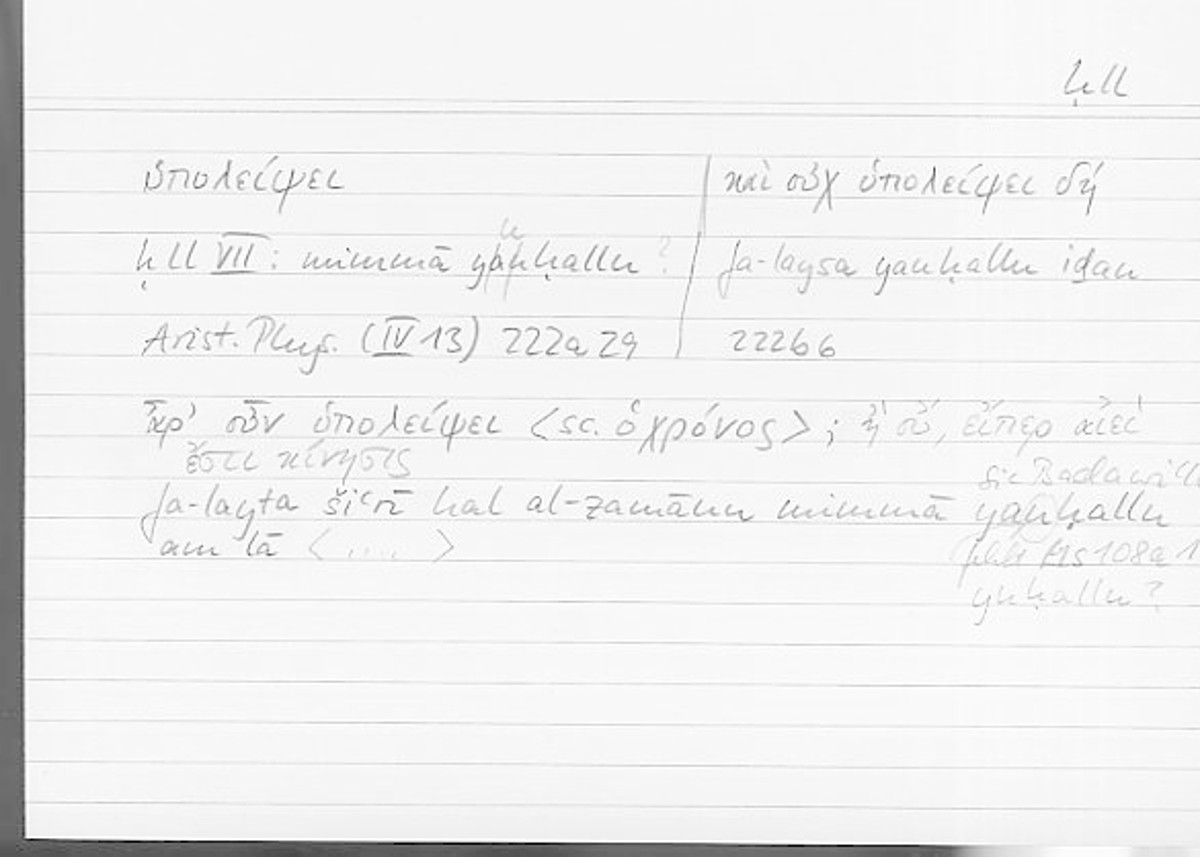 ḥll
ὑπολείψει | καὶ οὐχ ὑπολείψει δή
ḥll VII: mimmā yanḥallu ? | fa-laysa yanḥallu iḏan
Arist. Phys. (IV 13) 222a29 | 222b6
ἆρ' οὖν ὑπολείψει <sc. ὁ χρόνος>; ἢ οὔ, εἴπερ αἰεὶ
ἔστι κίνησις
sic Badawī
fa-layta šiʿrī hal al-zamānu mimmā yanḥallu
am lā < ..... >
MS 108a
yuḥallu?